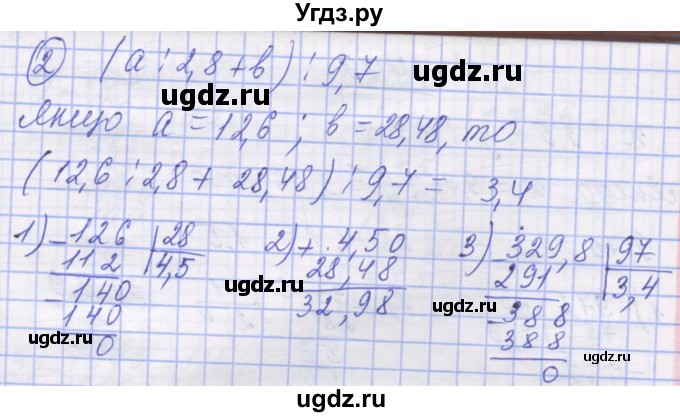 Угдз.ру
② (a : 2,8 + b) : 9,7
ugdz.ru ugdz.ru
Якщо a = 12,6 ; b = 28,48, то
(12,6 : 2,8 + 28,48) : 9,7 = 3,4
ugdz.ru
1) 126 | 28 2) + 4,50 3) 329,8 | 97
112 | 4,5 28,48 291 | 3,4
140 32,98 388
140 388
0 0
ugdz.ru ugdz.ru
ugdz.ru